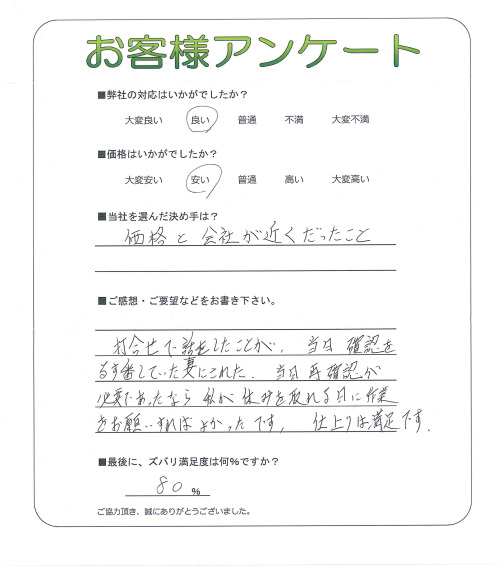 お客様アンケート
■弊社の対応はいかがでしたか？
大変良い 良い 普通 不満 大変不満
■価格はいかがでしたか？
大変安い 安い 普通 高い 大変高い
■当社を選んだ決め手は？
価格と会社が近くだったこと
■ご感想・ご要望などをお書き下さい。
打合せで話をしたことが、当日確認を
るす番していた妻にされた。当日再確認が
必要であったなら私が休みを取れる日に作業
をお願いすればよかったです。仕上りは満足です。
■最後に、ズバリ満足度は何%ですか？
80 %
ご協力頂き、誠にありがとうございました。